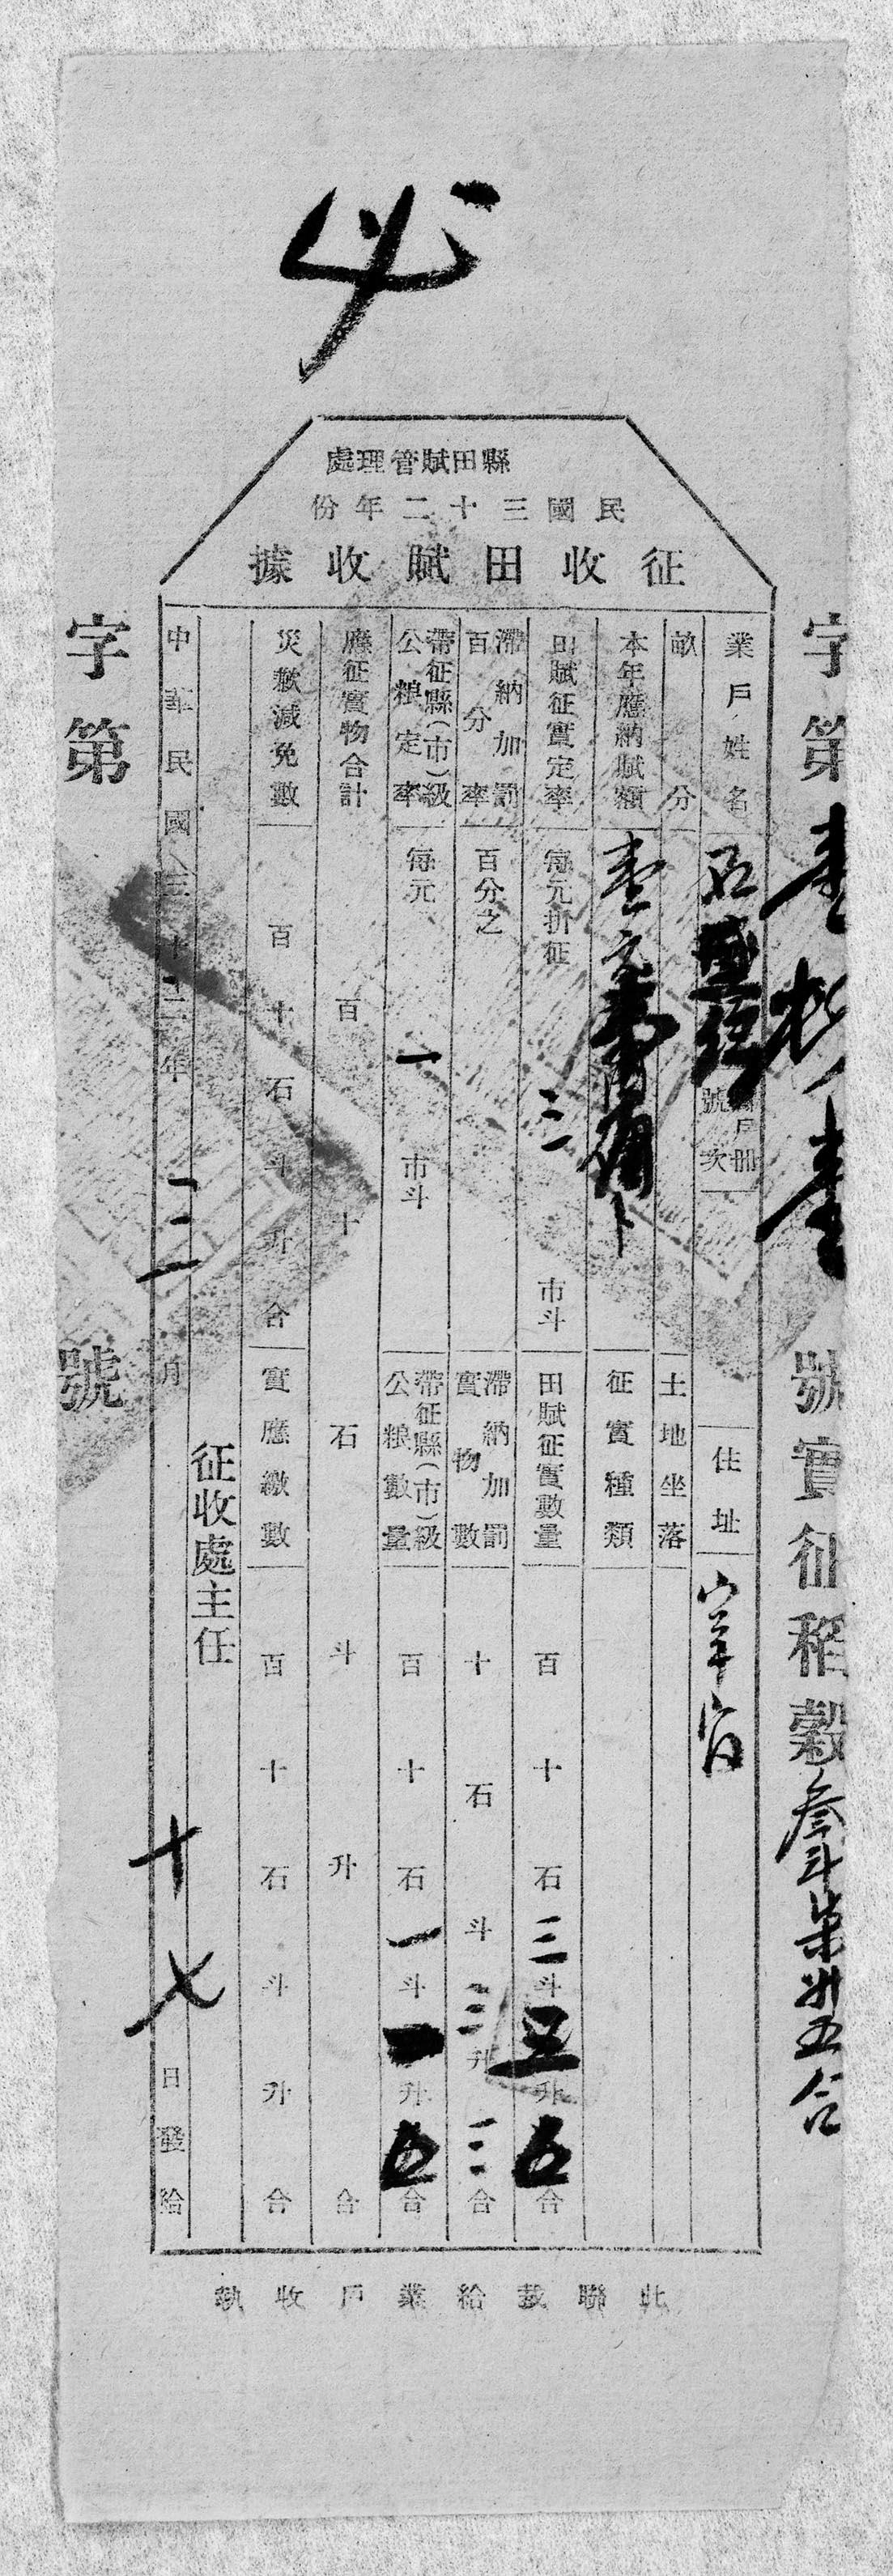 縣田賦管理處
民國三十二年份
征收田賦收據
字第壹 壹號實征稻穀叁斗柒升五合
業戶姓名 石盛 戶冊號次 住址
畝分 土地坐落
本年應納賦額 壹元 征實種類
田賦征實定率 每元折征 三 市斗 田賦征實數量 百十石三斗五升五合
滯納加罰百分率 百分之 滯納加罰實物數 十石斗三升三合
帶征縣（市）級公粮定率 每元 一 市斗 帶征縣（市）級公粮數量 百十石一斗一升五合
應征實物合計 百十石斗升合
災歉減免數 百十石斗升合 實應繳數 百十石斗升合
征收處主任
中華民國三十三年三月十七日發給
字第 號
此聯裁給業戶收執